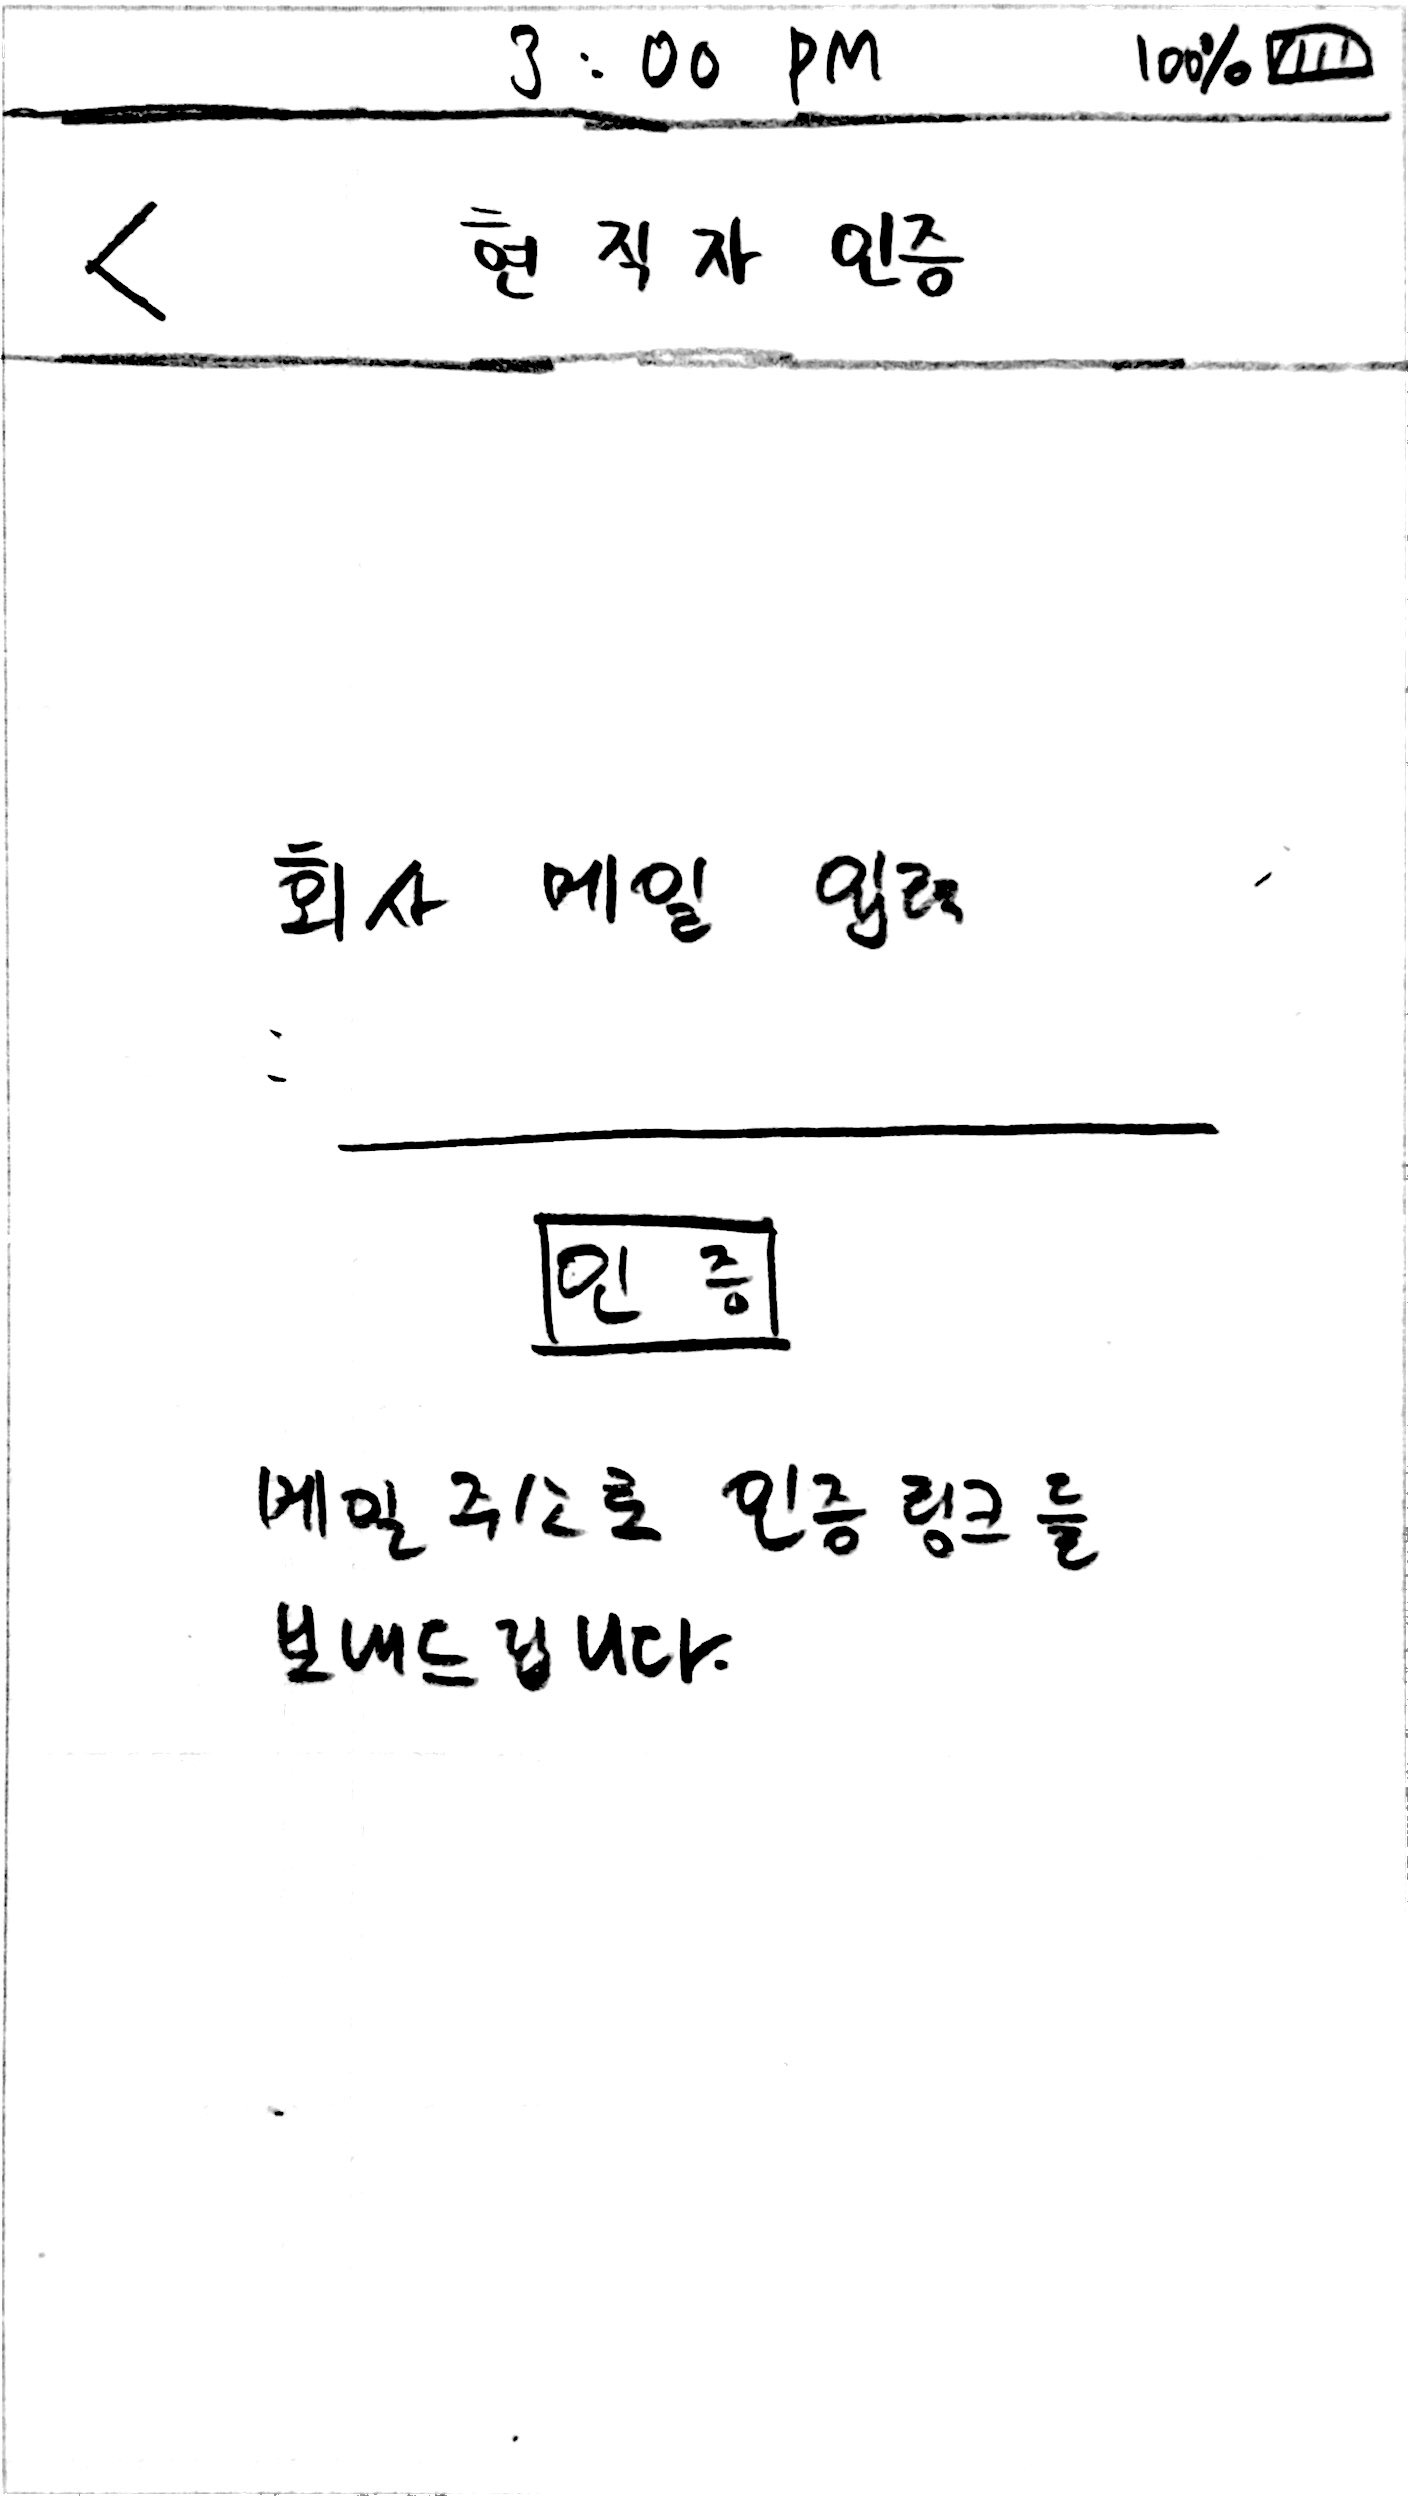 3:00 PM 100%
< 현직자 인증
회사 메일 입력
:
인증
메일 주소로 인증링크를
보내드립니다.